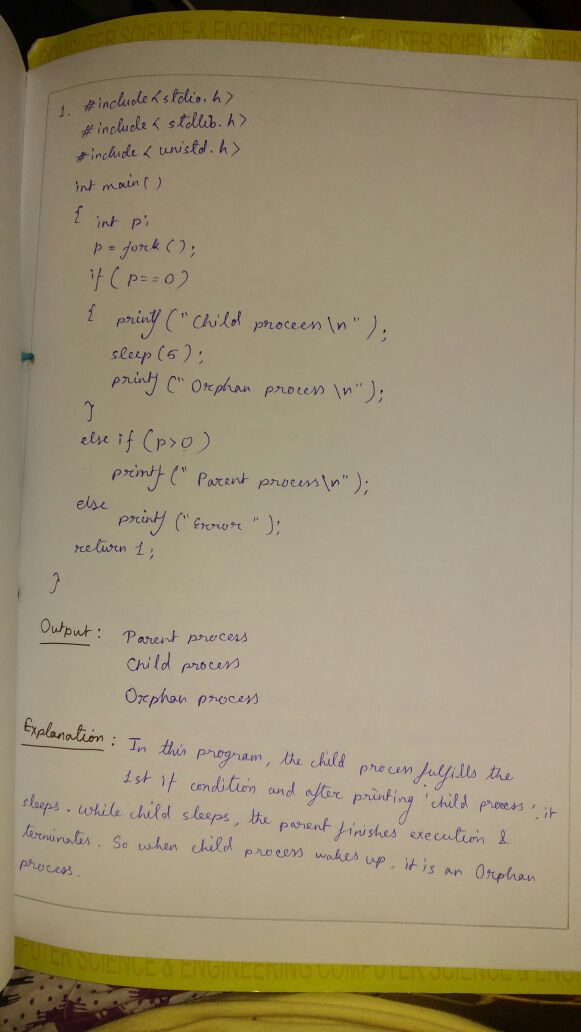 COMPUTER SCIENCE & ENGINEERING COMPUTER SCIENCE & ENGI
1. #include<stdio.h>
#include < stdlib.h>
#include < unistd.h>
int main()
{ int p;
p = fork();
if (p==0)
{ printf ("Child process\n");
sleep(5);
printf (" Orphan process \n");
}
else if (p>0)
printf (" Parent process\n");
else
printf ("Error ");
return 1;
}
Output : Parent process
Child process
Orphan process
Explanation : In this program, the child process fulfills the
1st if condition and after printing 'child process', it
sleeps. While child sleeps, the parent finishes execution &
terminates. So when child process wakes up, it is an Orphan
process.
COMPUTER SCIENCE & ENGINEERING COMPUTER SCIENCE & ENG